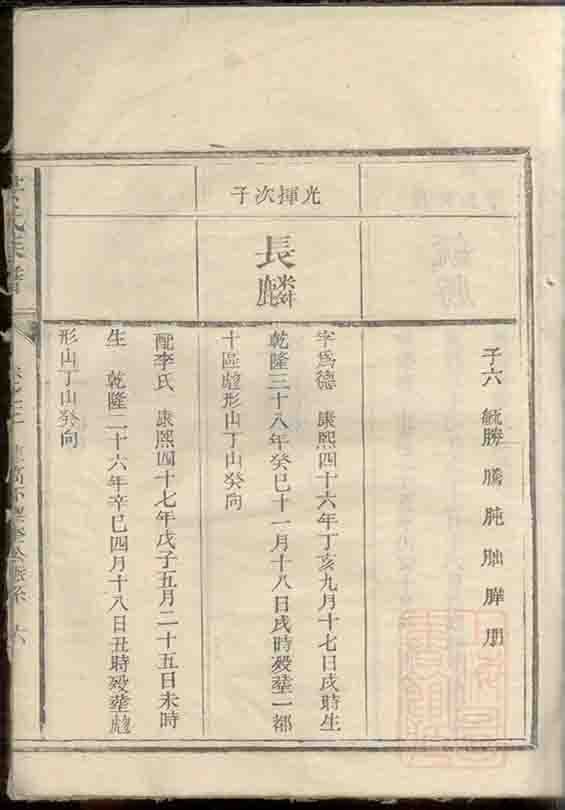 子六 毓勝 騰 肫 朏 䏢 朋
光揮次子
長麟
字爲德 康熙四十六年丁亥九月十七日戌時生
乾隆三十八年癸巳十一月十八日戌時歿葬一都
十區虎形山丁山癸向
配李氏 康熙四十七年戊子五月二十五日未時
生 乾隆二十六年辛巳四月十八日丑時歿葬虎
形山丁山癸向
氏族譜